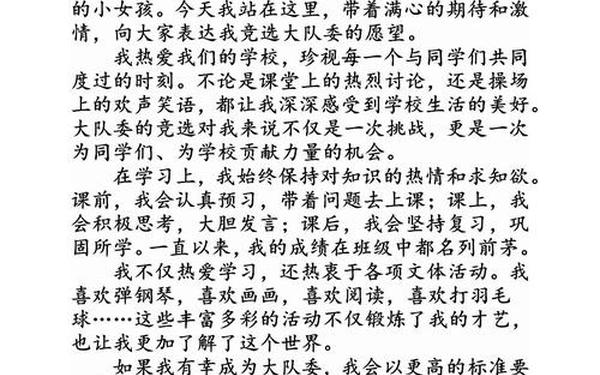 的小女孩。今天我站在这里，带着满心的期待和激
情，向大家表达我竞选大队委的愿望。
我热爱我们的学校，珍视每一个与同学们共同
度过的时刻。不论是课堂上的热烈讨论，还是操场
上的欢声笑语，都让我深深感受到学校生活的美好。
大队委的竞选对我来说不仅是一次挑战，更是一次
为同学们、为学校贡献力量的机会。
在学习上，我始终保持对知识的热情和求知欲。
课前，我会认真预习，带着问题去上课；课上，我
会积极思考，大胆发言；课后，我会坚持复习，巩
固所学。一直以来，我的成绩在班级中都名列前茅。
我不仅热爱学习，还热衷于各项文体活动。我
喜欢弹钢琴，喜欢画画，喜欢阅读，喜欢打羽毛
球……这些丰富多彩的活动不仅锻炼了我的才艺，
也让我更加了解了这个世界。
如果我有幸成为大队委，我会以更高的标准要